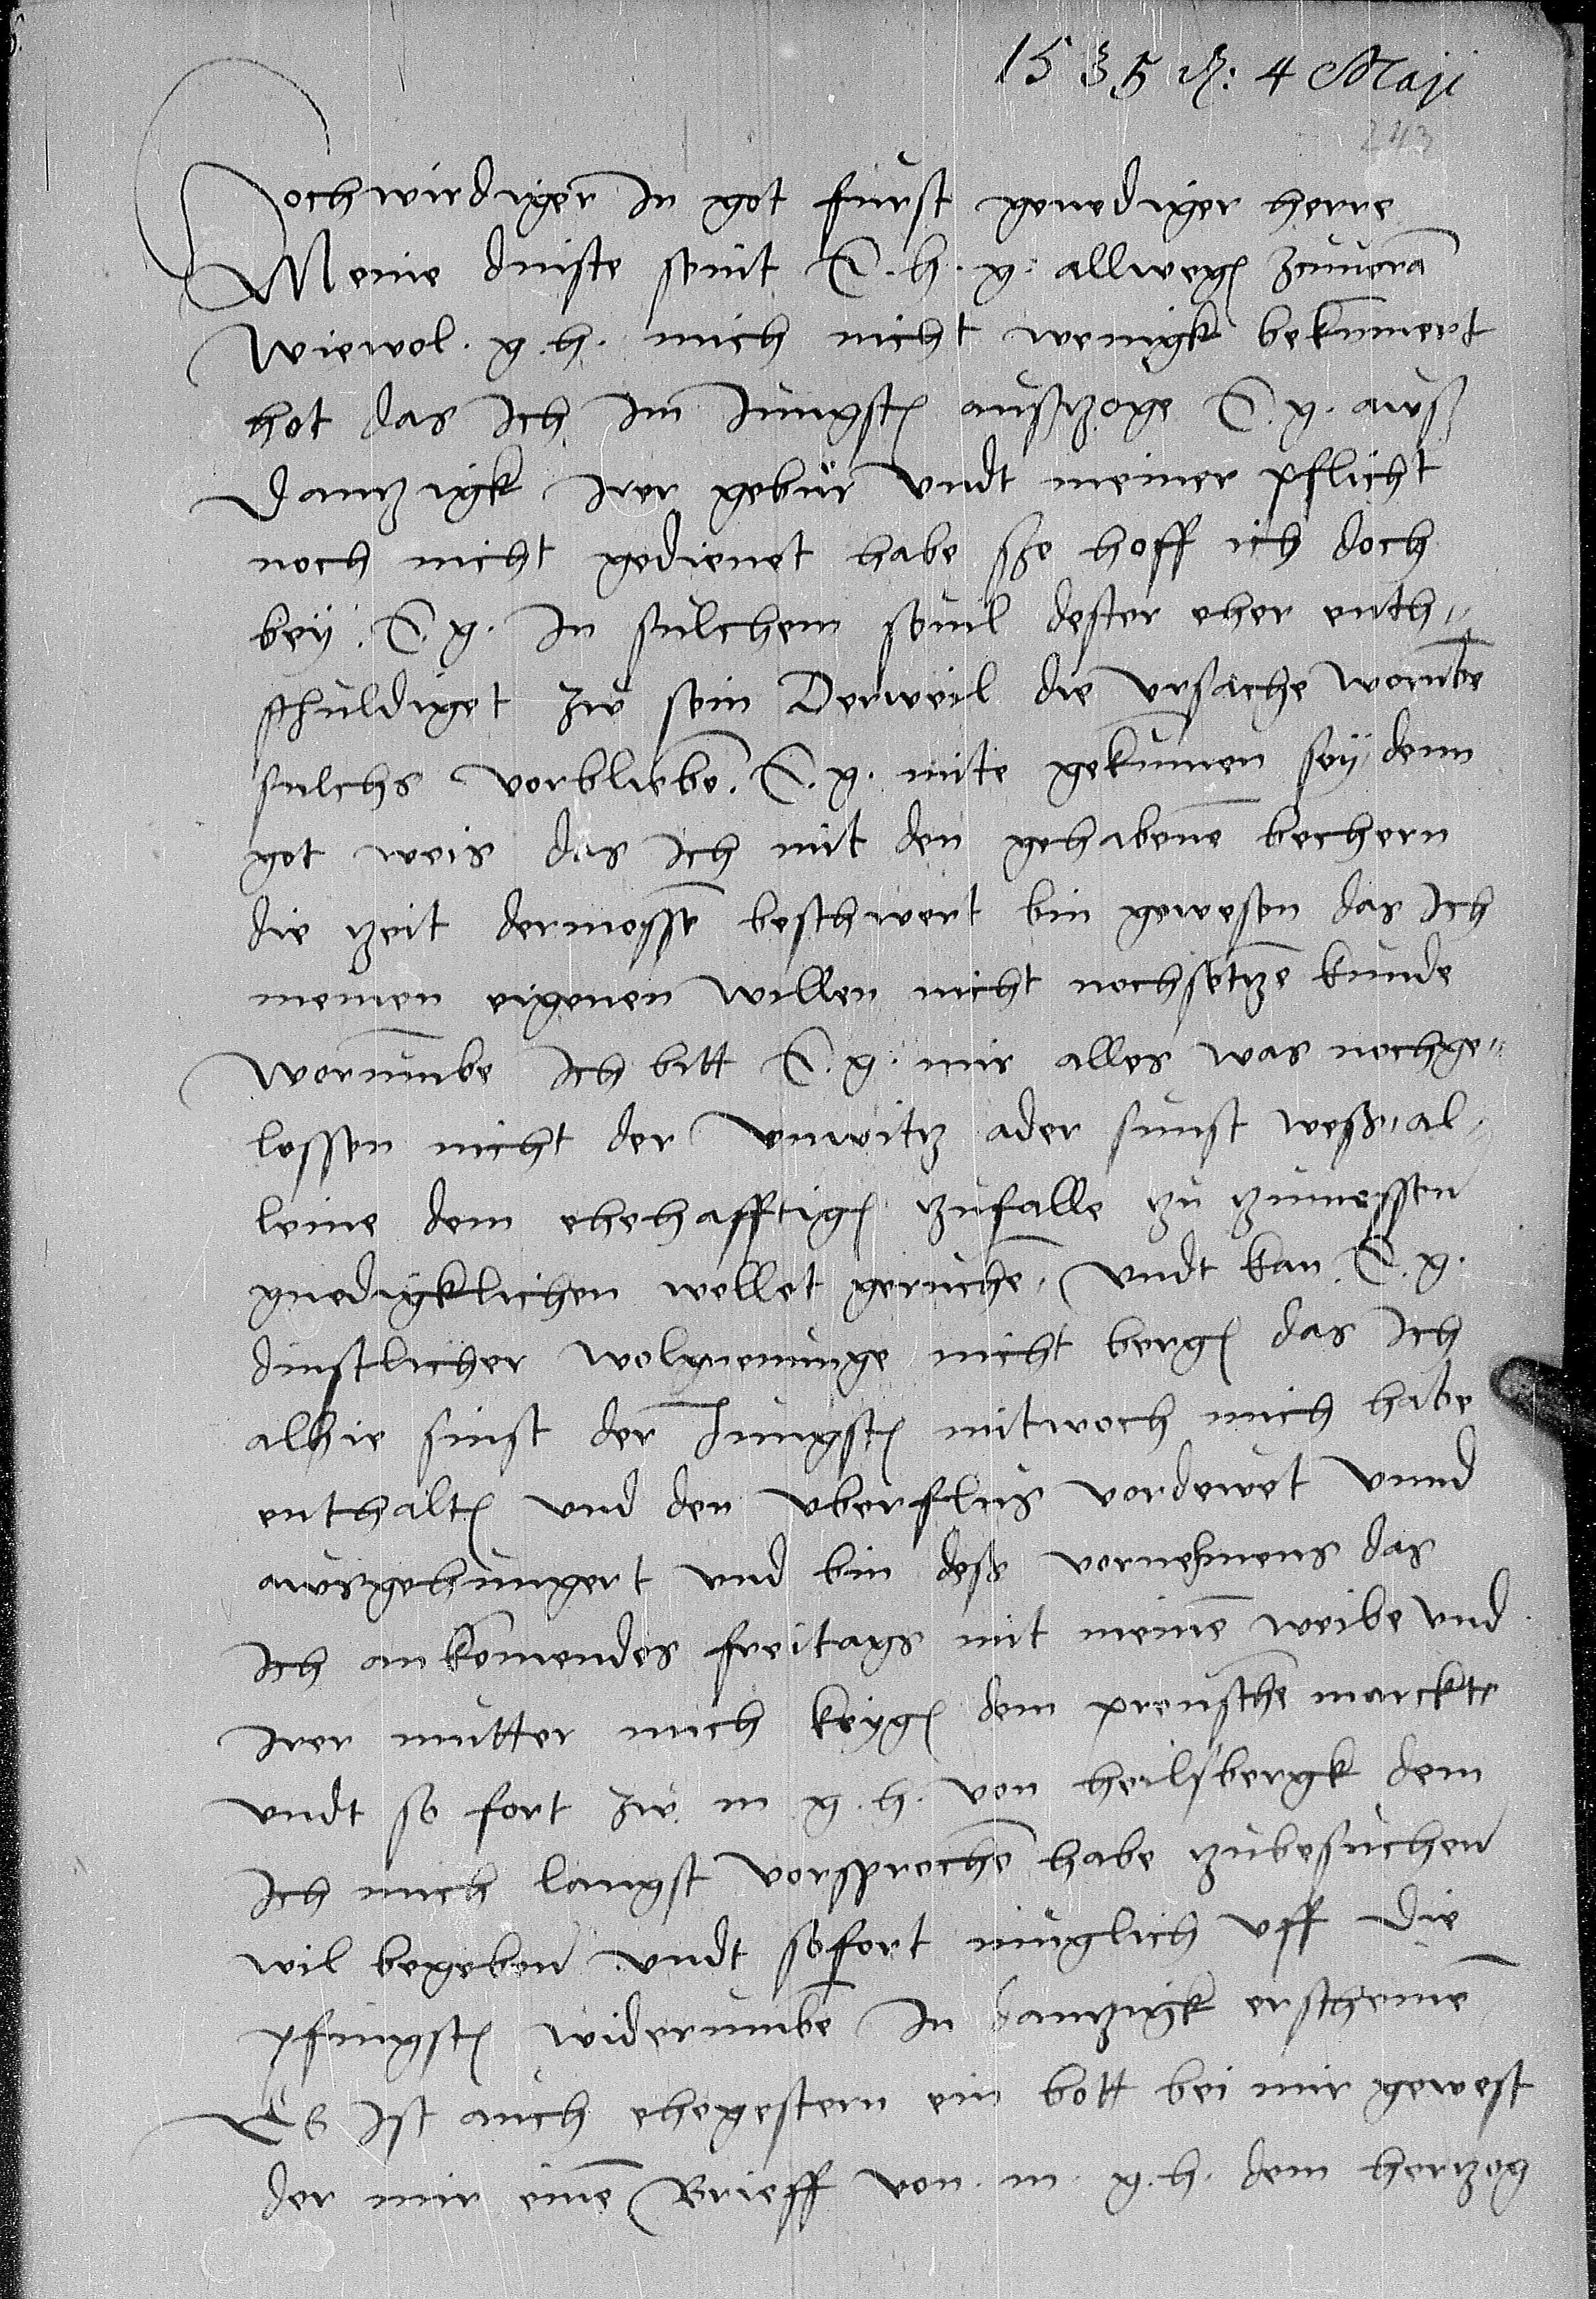 1535 d: 4 Maji
243
Hochwirdiger In got furst genediger herre
Meine dinste seint E. h. g. allwegen zcuuorā
Wiewol. g. h. mich nicht wenigk bekūmert
hot das Ich Im Jungsten auszoge E. g. auss
Dantzigk Irer gebur vndt meiner pflicht
noch nicht gedienet habe sze hoff ich doch
bey. E. g. In sulchem seuil dester eher enth„
schuldiget zw sein Derweil die vrsache worūbe
sulchs vorbliebē. E. g. mite gekūmen sey denn
got weis das Ich mit den gehabenē bechern
die zeit dermossē beschwert bin gewesen das Ich
meinen eigenen willen nicht nochsetzē kunde
Worumbe Ich bitt E. g. mir alles was nochge„
lossen nicht der vnwitz ader sunst wesz, al„
leine dem ehehafftigen zufalle zu zumessen
gnedigklichen wollet geruchē, vndt kan E. g.
dinstlicher wolmeinunge nicht bergen das Ich
alhie sinst der Jungsten mitwoch mich habe
enthalten vnd den vberflus vordewet vnnd
auszgehungert vnd bin desz vornehmens das
Ich an komendes freitags mit meinē weibe vnd
Irer mutter mich keygen dem preuschē marckte
vndt so fort zw m. g. h. von heilsbergk dem
Ich mich langst vorsprochē habe zubesuchen
wil begeben vndt sofort muglich vff die
pfingsten widerumbe In dantzigk erscheinē
Es Ist auch ehegestern ein bott bei mir gewest
der mir einē Brieff von m. g. h. dem hertzog